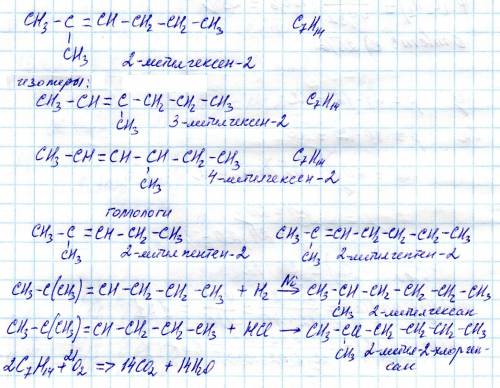 CH₃ - C = CH - CH₂ - CH₂ - CH₃ C₇H₁₄
CH₃
2-метилгексен-2
изомеры:
CH₃ - CH = C - CH₂ - CH₂ - CH₃ C₇H₁₄
CH₃ 3-метилгексен-2
CH₃ - CH = CH - CH - CH₂ - CH₃ C₇H₁₄
CH₃ 4-метилгексен-2
гомологи
CH₃ - C = CH - CH₂ - CH₃ CH₃ - C = CH - CH₂ - CH₂ - CH₂ - CH₃
CH₃ 2-метилпентен-2 CH₃ 2-метилгептен-2
CH₃ - C(CH₃) = CH - CH₂ - CH₂ - CH₃ + H₂ Ni→ CH₃ - CH - CH₂ - CH₂ - CH₂ - CH₃
CH₃ 2-метилгексан
CH₃ - C(CH₃) = CH - CH₂ - CH₂ - CH₃ + HCl → CH₃ - CCl - CH₂ - CH₂ - CH₂ - CH₃
CH₃ 2-метил-2-хлоргек-
сан
2C₇H₁₄ + 21O₂ => 14CO₂ + 14H₂O